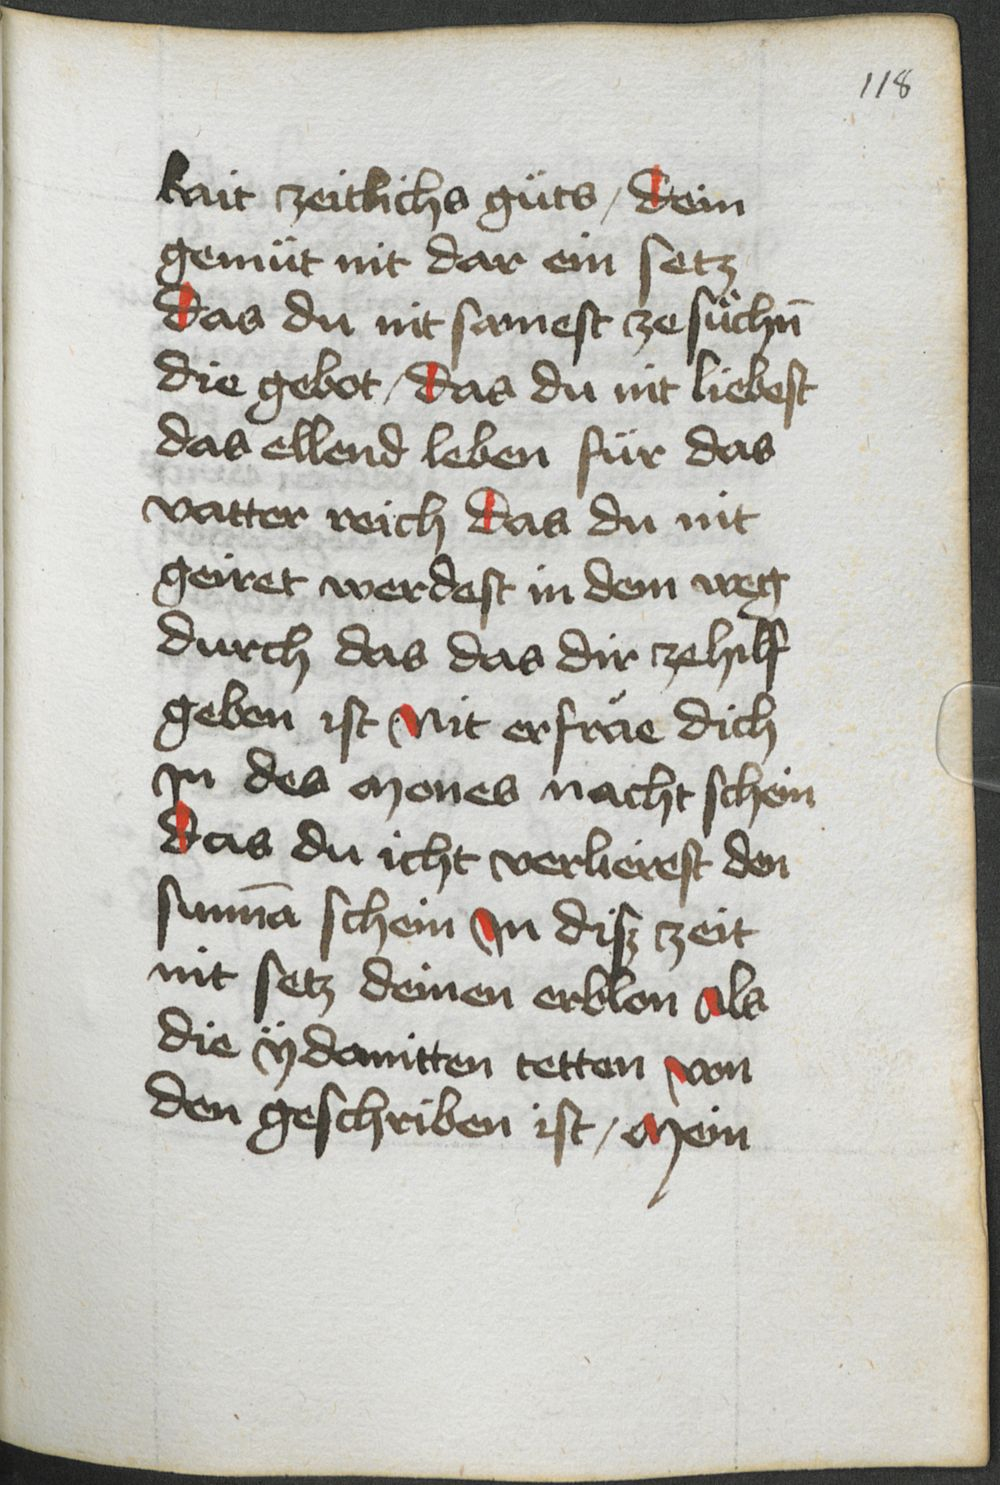 118
kait zeitlichs güts / Dein
gemüt nit dar ein setz
Das du nit samest ze süchn̄
die gebot / Das du nit liebest
das ellend leben für das
vatter reich Das du nit
geirret werdest in dem weg
durch das das dir ze hilf
geben ist Nit erfräe dich
In des mones nacht schein
Das du icht verlierest den
sunn̄a schein In disz zeit
nit setz deinen erblon Als
die ÿdamitten tetten Von
den geschriben ist / Mein